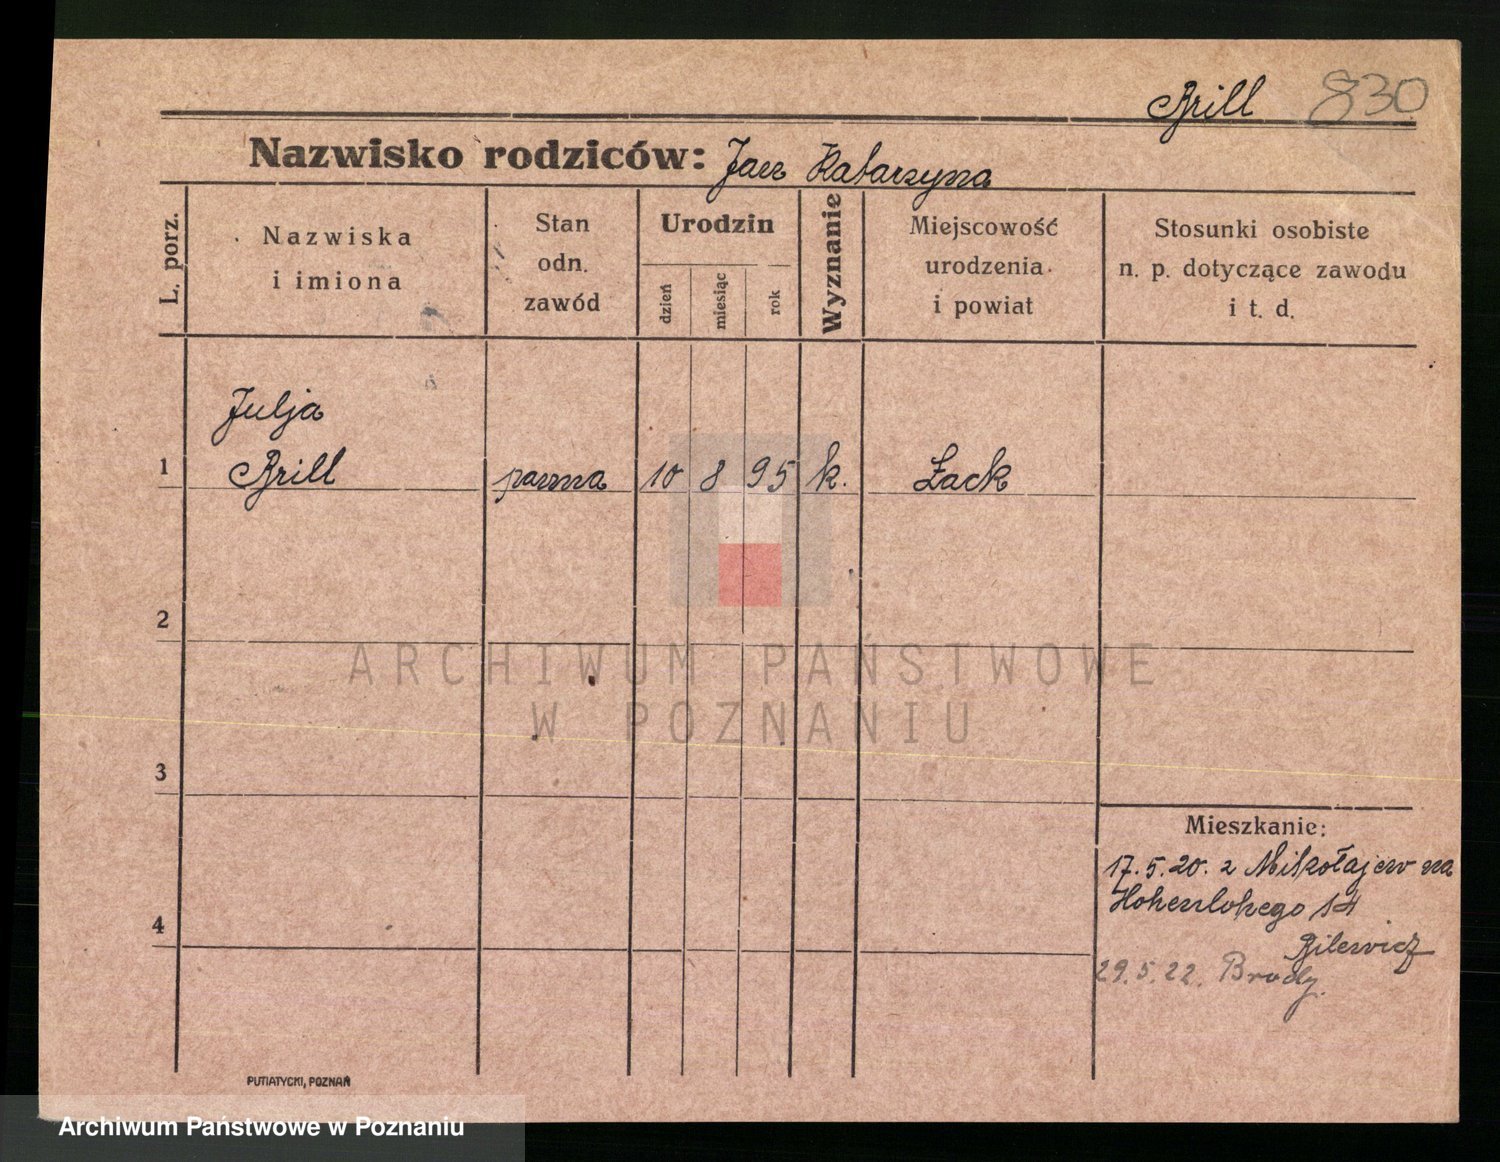 Brill 830
Nazwisko rodziców: Jan Katarzyna
L. porz.
Nazwiska
i imiona
Stan
odn.
zawód
Urodzin
dzień
miesiąc
rok
Wyznanie
Miejscowość
urodzenia
i powiat
Stosunki osobiste
n. p. dotyczące zawodu
i t. d.
Julja
1 Brill panna 10 8 95 k. Żack
2
ARCHIWUM PAŃSTWOWE
W POZNANIU
3
Mieszkanie:
17.5.20. z Mikołajew na
Hohenlohego 14
Bilewicz
4
29.5.22. Brody.
PUTIATYCKI, POZNAŃ
Archiwum Państwowe w Poznaniu